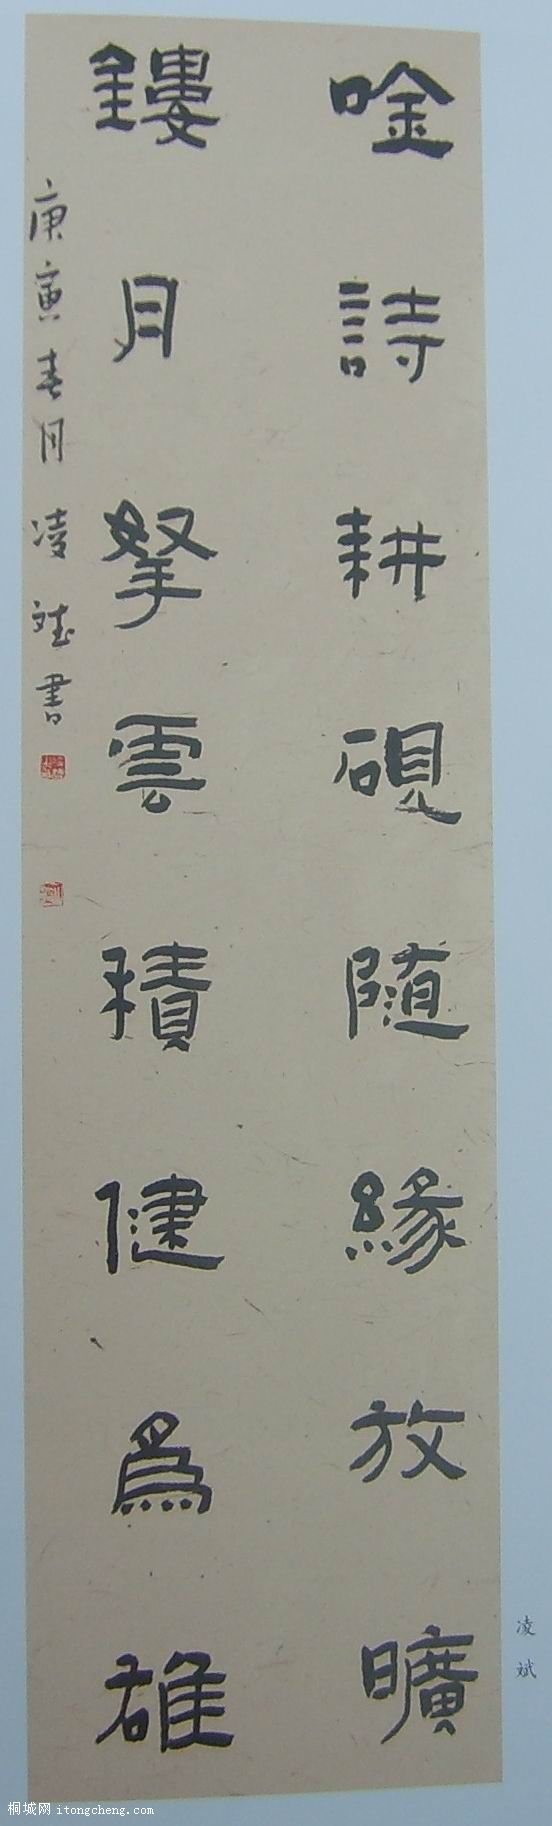 唫詩耕硯随緣放曠
鏤月拏雲積健為雄
庚寅春月凌斌書
凌斌
桐城网 itongcheng.com